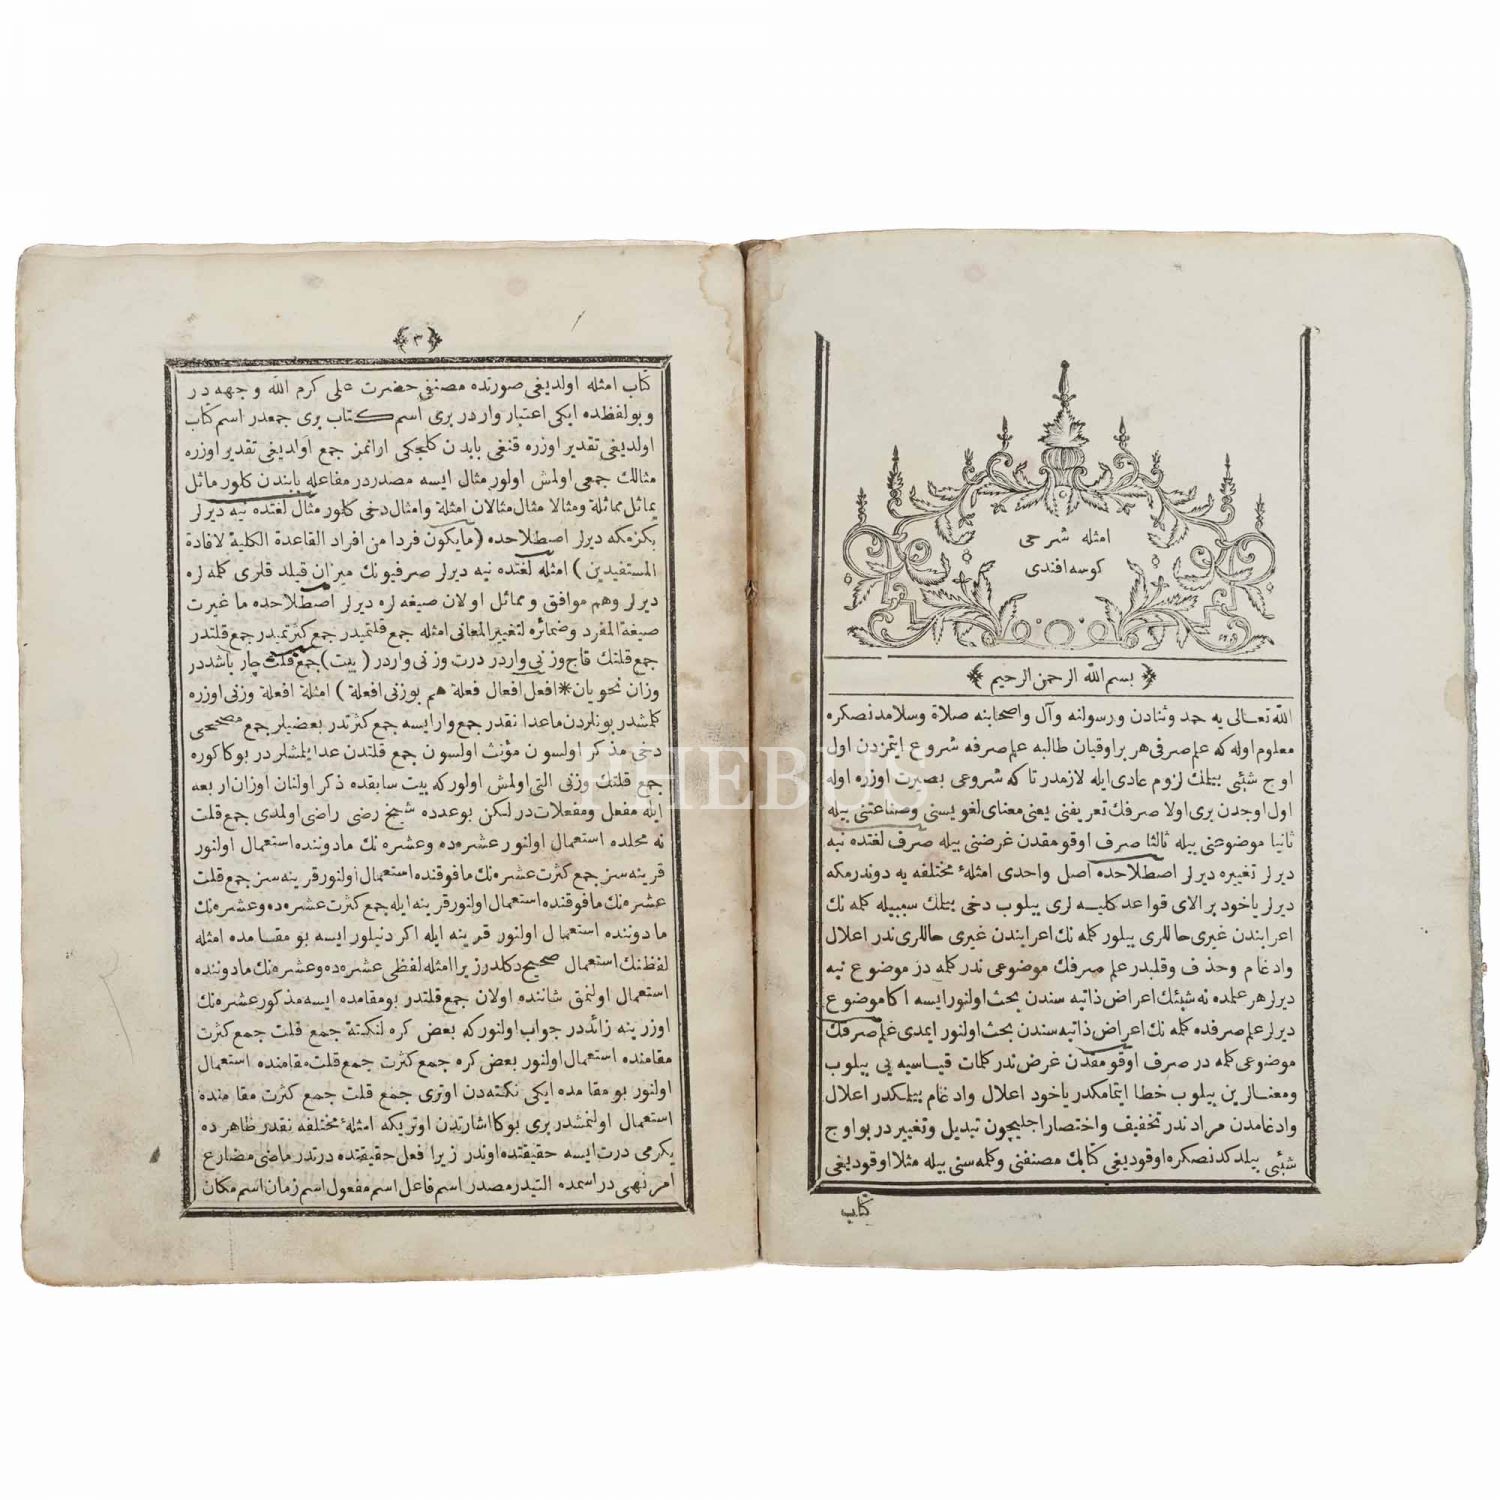 امثله شرحی
کوسه افندی
بسم الله الرحمن الرحیم
الله تعالی یه حمد وثنادن ورسولنه وآل واصحابنه صلاة وسلامدنصکره
معلوم اوله که علم صرفی هر براوقیان طالبه علم صرفه شروع ایتمزدن اول
اوج شیئی بیتلك لزوم عادی ایله لازمدر تا که شروعی بصیرت اوزره اوله
اول اوجدن بری اولا صرفك تعریفنی یعنی معنای لغویسنی وصناعتنی بیله
ثانیا موضوعنی بیله ثالثا صرف اوقومقدن غرضنی بیله صرف لغتده نیه
دیرلر تغییره دیرلر اصطلاحده اصل واحدی امثلهٔ مختلفه یه دوندرمکه
دیرلر یاخود برالای قواعد کلیه لری بیلوب دخی بیتلك سببیله کله نك
اعرابندن غیری حاللری بیلور کله نك اعرابندن غیری حاللری ندر اعلال
وادغام وحذف وقلبدر علم صرفك موضوعی ندر کلمه در موضوع نیه
دیرلر هر علمده نه شیئك اعراض ذاتیه سندن بحث اولنور ایسه اکا موضوع
دیرلر علم صرفده کله نك اعراض ذاتیه سندن بحث اولنور ایمدی علم صرفك
موضوعی کله در صرف اوقومقدن غرض ندر کلمات قیاسیه یی بیلوب
ومعنالرین بیلوب خطا ایتمامکدر یاخود اعلال وادغام بیتلمکدر اعلال
وادغامدن مراد ندر تخفیف واختصار اجلیچون تبدیل وتغییر در بو اوج
شیئی بیلد کدنصکره اوقودیغی کتابك مصنفنی وکله سنی بیله مثلا اوقودیغی
کتاب
٣
کتاب امثله اولدیغی صورتده مصنفی حضرت علی کرم الله وجهه در
وبولفظده ایکی اعتبار واردر بری اسم کتاب بری جمعدر اسم کتاب
اولدیغی تقدیر اوزره قنغی بابدن کلیجکی ارانمز جمع اولدیغی تقدیر اوزره
مثالك جمعی اولمش اولور مثال ایسه مصدردر مفاعله بابندن کلور ماثل
یماثل مماثلة ومثالا مثال مثالان امثلة وامثال دخی کلور مثال لغتده نیه دیرلر
بکزمکه دیرلر اصطلاحده (مایکون فردا من افراد القاعدة الکلیة لافادة
المستفیدین) امثله لغتده نیه دیرلر صرفیونك میزان قیلد قلری کله لره
دیرلر وهم موافق ومماثل اولان صیغه لره دیرلر اصطلاحده ما غیرت
صیغة المفرد وضمائره لتغییر المعانی امثله جمع قلتمیدر جمع کثرتمیدر جمع قلتدر
جمع قلتك قاچ وزنی واردر درت وزنی واردر (بیت) جمع قلت چار باشددر
وزان نحویان * افعل افعال فعلة هم بوزنی افعلة) امثلة افعلة وزنی اوزره
کلمشدر بونلردن ماعدا نقدر جمع وارایسه جمع کثرتدر بعضیلر جمع مصححی
دخی مذکر اولسون مؤنث اولسون جمع قلتدن عدایلمشلردر بوکا کوره
جمع قلتك وزنی التی اولمش اولور که بیت سابقده ذکر اولنان اوزان اربعه
ایله مفعل ومفعلات در لکن بوعدده شیخ رضی راضی اولمدی جمع قلت
نه محلده استعمال اولنور عشره ده وعشره نك مادوننده استعمال اولنور
قرینه سز جمع کثرت عشره نك مافوقنده استعمال اولنور قرینه سز جمع قلت
عشره نك مافوقنده استعمال اولنور قرینه ایله جمع کثرت عشره ده وعشره نك
مادوننده استعمال اولنور قرینه ایله اکر دنیلور ایسه بومقامده امثله
لفظنك استعمال صحیح دکلدر زیرا امثله لفظی عشره ده وعشره نك مادوننده
استعمال اولنمق شاننده اولان جمع قلتدر بومقامده ایسه مذکور عشره نك
اوزرینه زائددر جواب اولنورکه بعض کره لنکتة جمع قلت جمع کثرت
مقامنده استعمال اولنور بعض کره جمع کثرت جمع قلت مقامنده استعمال
اولنور بومقامده ایکی نکته دن اوتری جمع قلت جمع کثرت مقامنده
استعمال اولنمشدر بری بوکا اشارتدن اوتریکه امثلهٔ مختلفه نقدر ظاهرده
یکرمی درت ایسه حقیقتده اوندر زیرا فعل حقیقتده درتدر ماضی مضارع
امر نهی در اسمده التیدر مصدر اسم فاعل اسم مفعول اسم زمان اسم مکان
PHEBUS